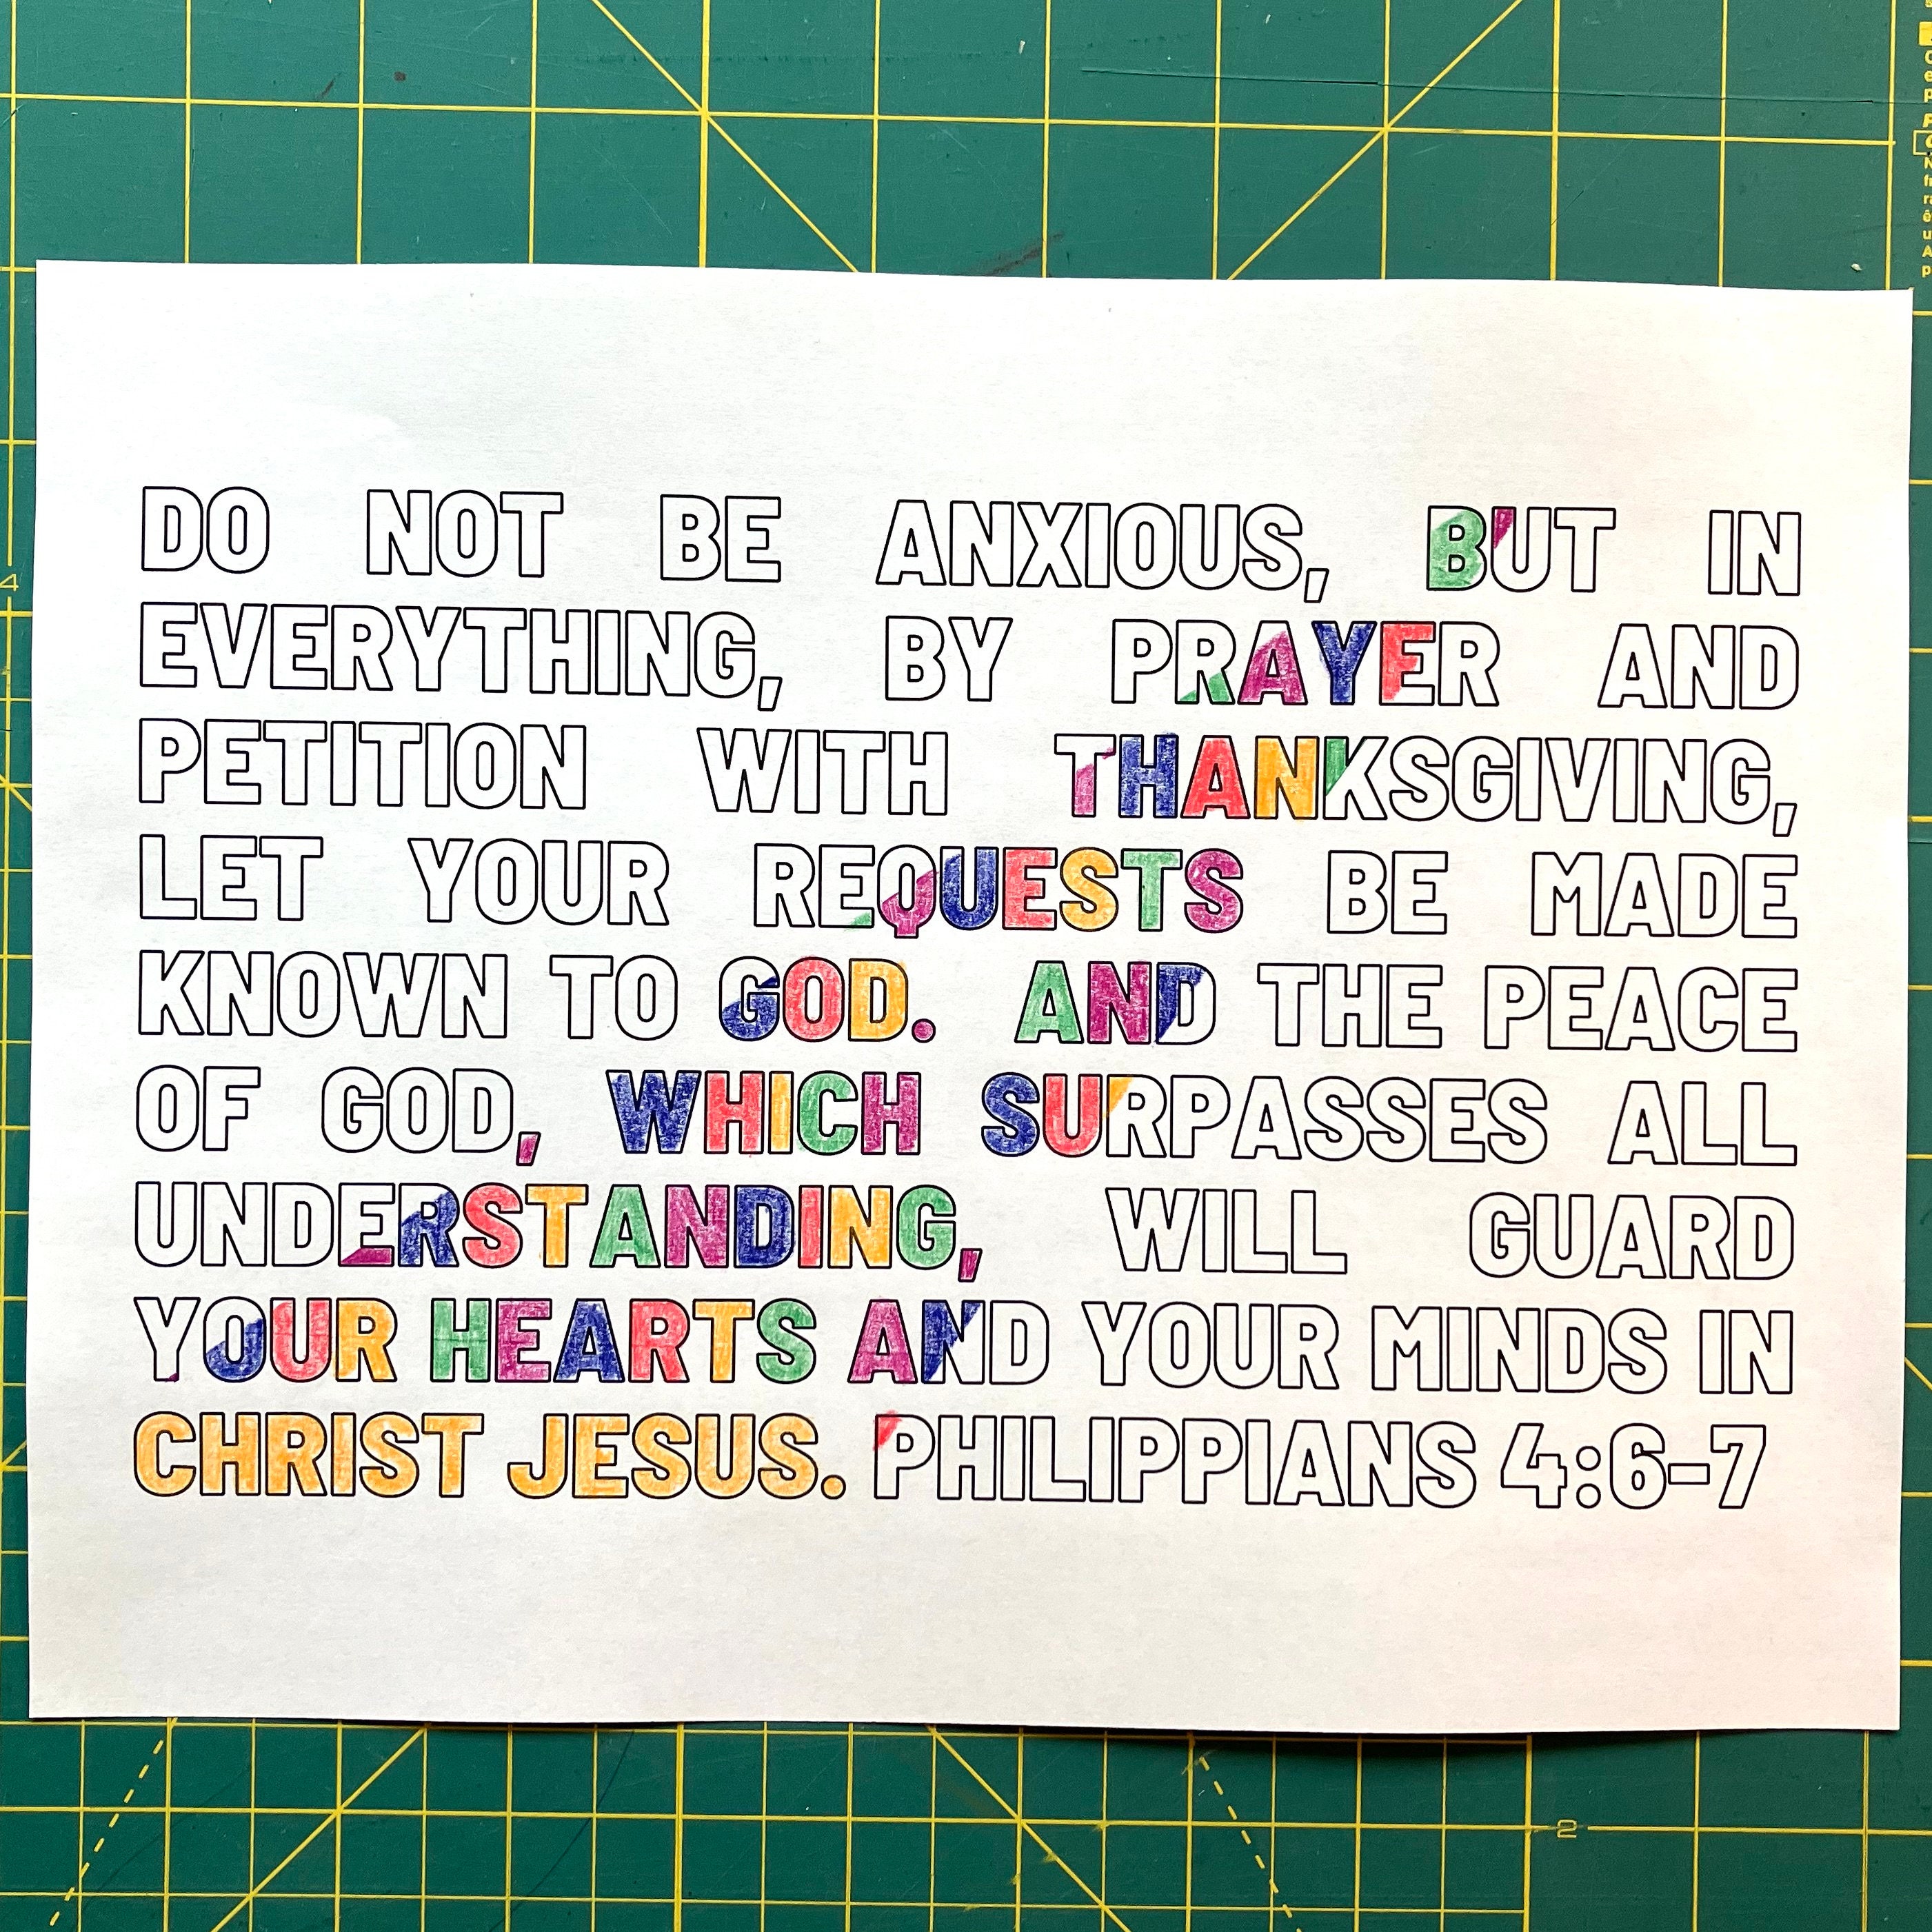 DO NOT BE ANXIOUS, BUT IN
EVERYTHING, BY PRAYER AND
PETITION WITH THANKSGIVING,
LET YOUR REQUESTS BE MADE
KNOWN TO GOD. AND THE PEACE
OF GOD, WHICH SURPASSES ALL
UNDERSTANDING, WILL GUARD
YOUR HEARTS AND YOUR MINDS IN
CHRIST JESUS. PHILIPPIANS 4:6-7
4
2